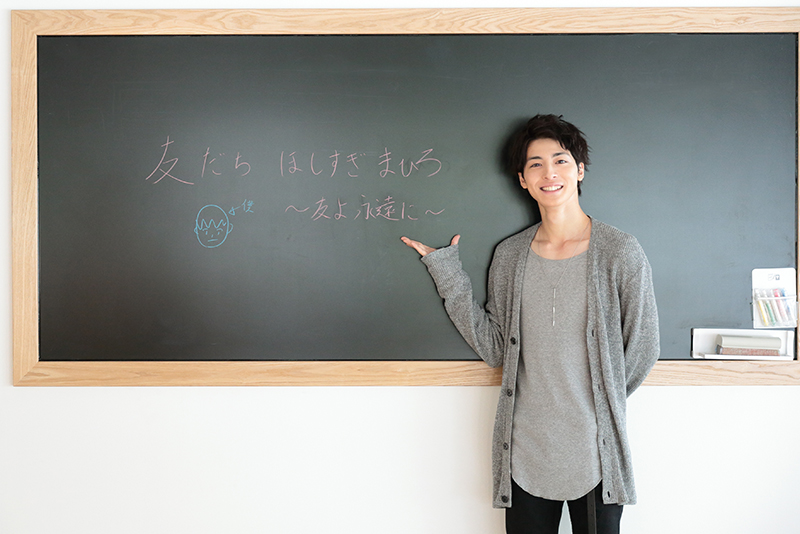 友だち ほしすぎ まひろ
〜友よ永遠に〜
僕